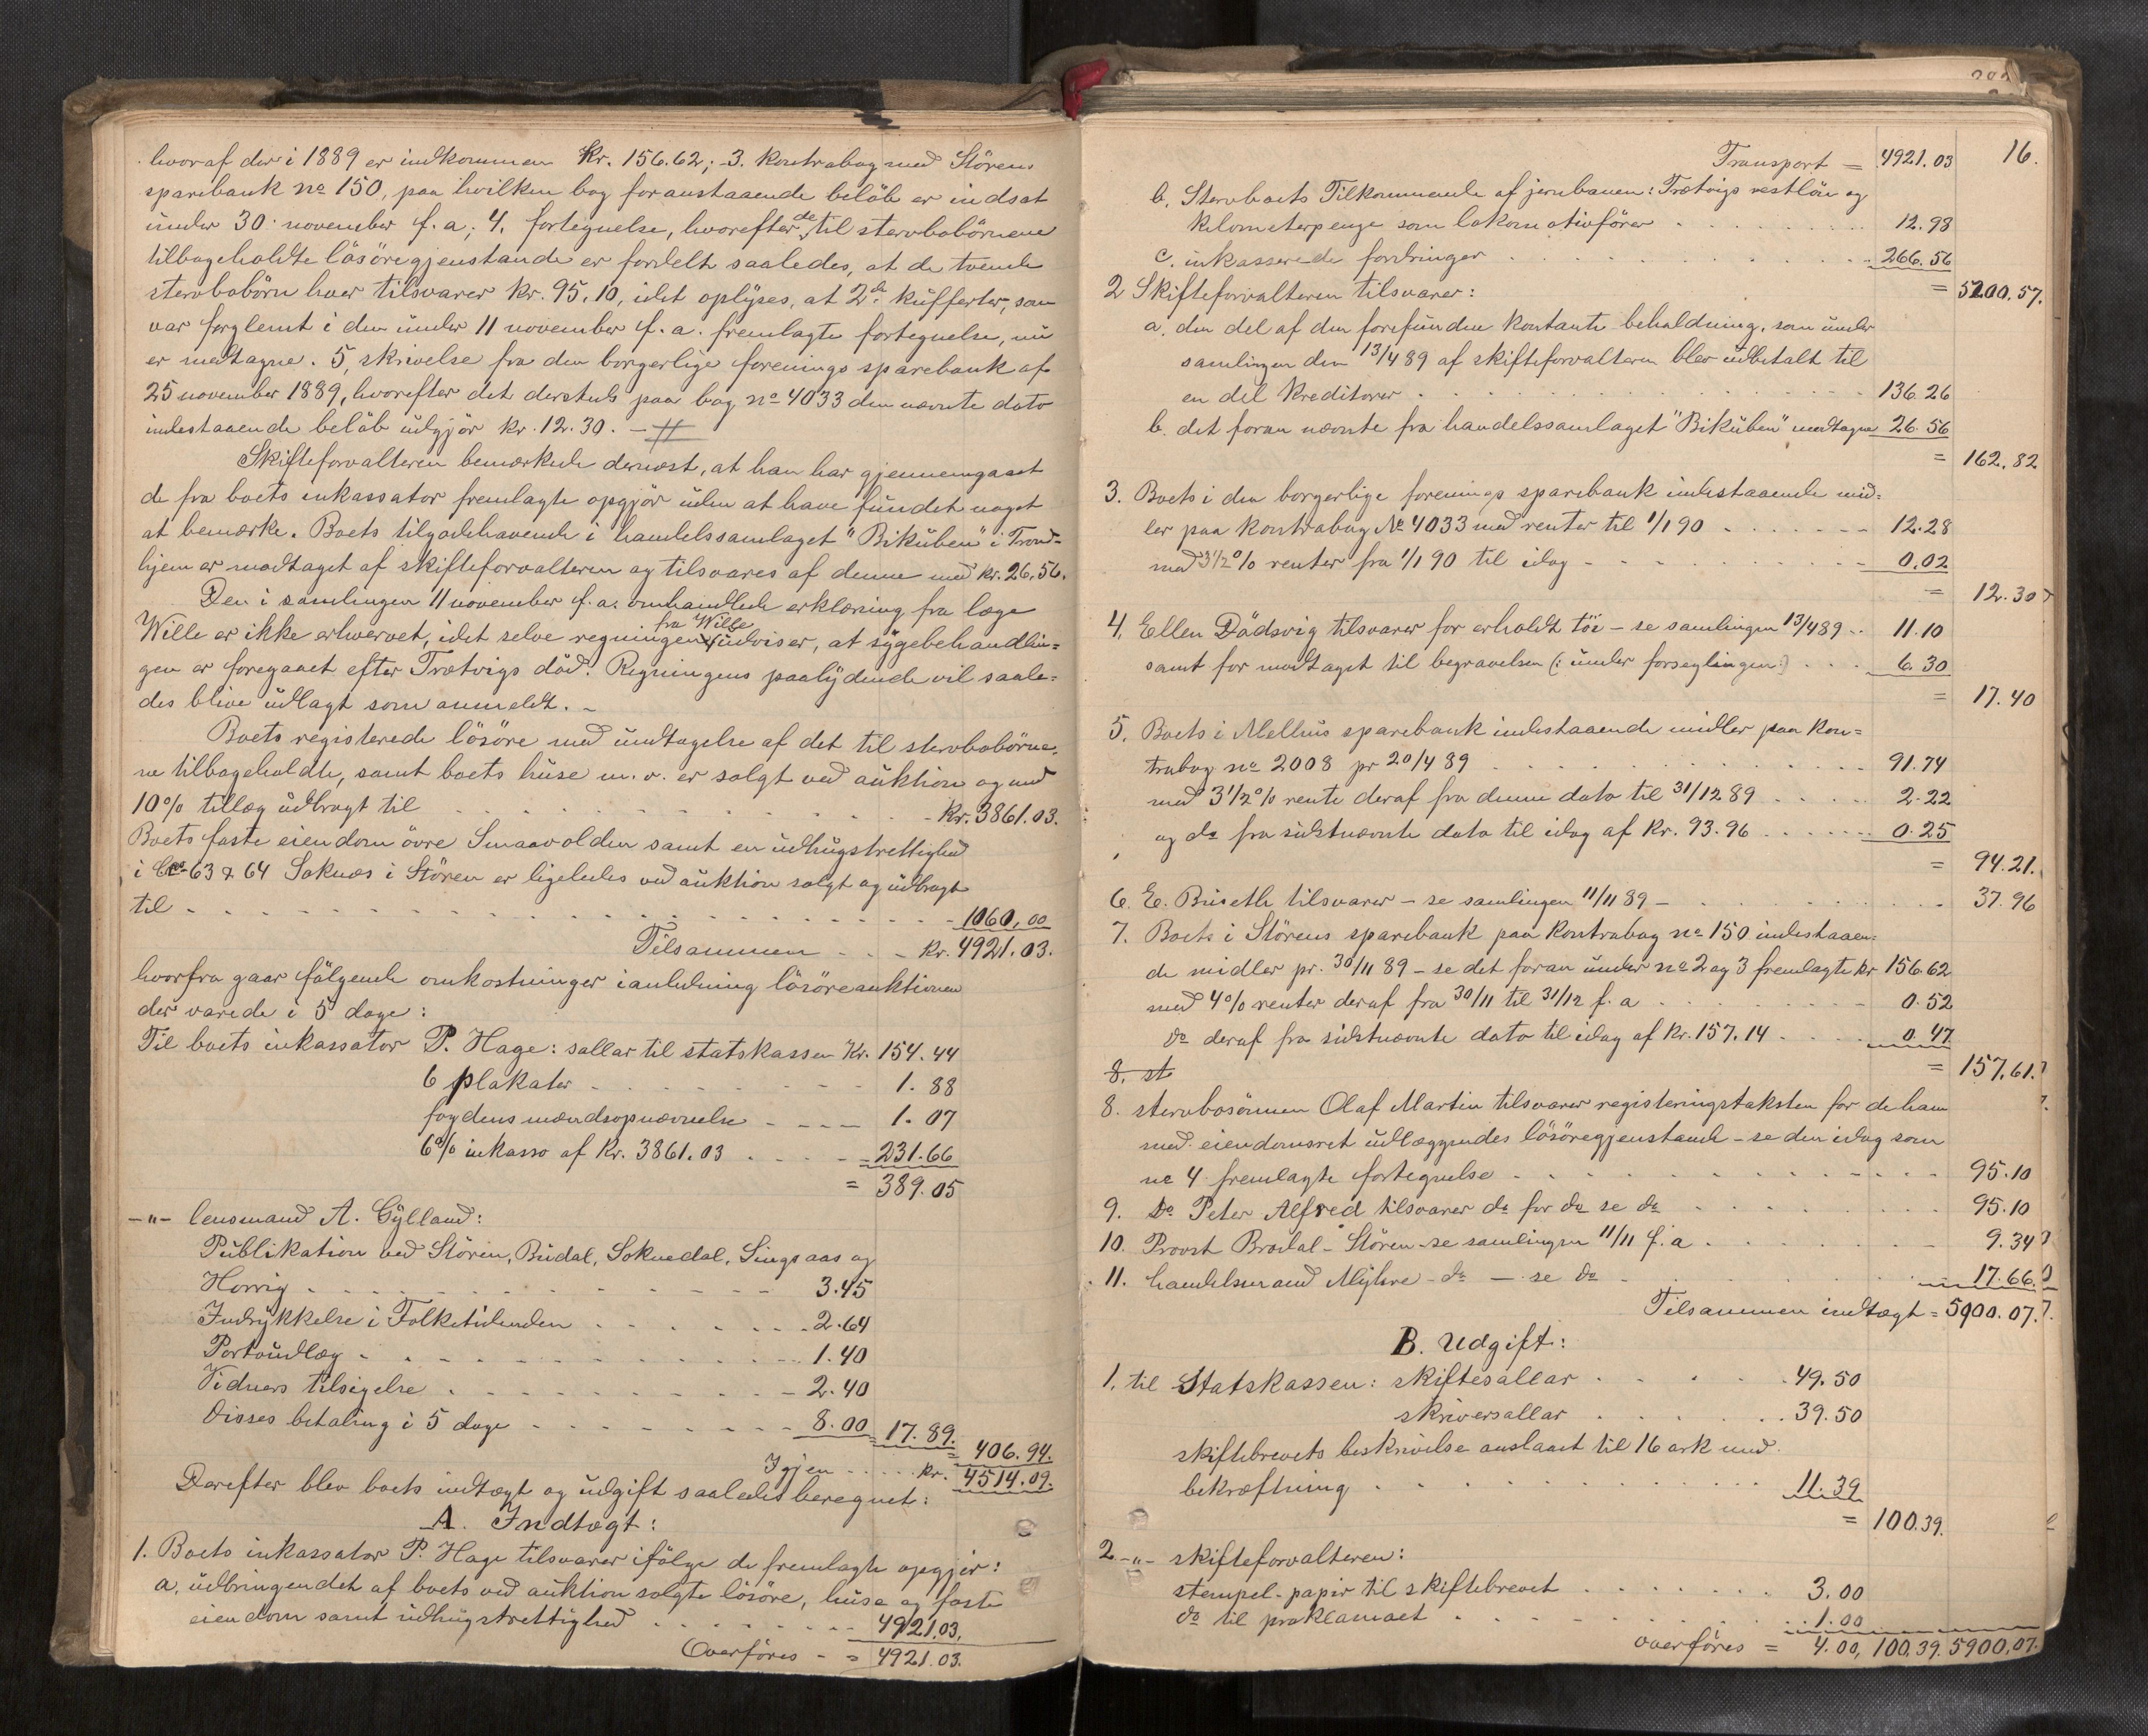 hvoraf der i 1889 er indkommen Kr. 156.62; 3. kontrabog med Störens
sparebank no 150, paa hvilken bog foranstaaende belöb er indsat
under 30 november f.a; 4, fortegnelse, hvorefter de til stervbobörnene
tilbageholdte lösöregjenstande er fordelt saaledes, at de tvende
stervbobörn hver tilsvarer Kr. 95,10, idet oplyses, at 2de kufferter, som
var forglemt i den under 11 november f.a. fremlagte fortegnelse, nu
er medtagne. 5, skrivelse fra den borgerlige forenings sparebank af
25 november 1889, hvorefter det dersteds paa bog no 4033 den nævnte dato
indestaaende belöb udgjör Kr. 12.30. —
Skifteforvalteren bemærkede dernæst, at han har gjennemgaaet
de fra boets inkassator fremlagte opgjör uden at have fundet noget
at bemærke. Boets tilgodehavende i handelssamlaget "Bikuben" i Trond=
hjem er modtaget af skifteforvalteren og tilsvares af denne med Kr. 26,56.
Den i samlingen 11 november f.a. omhandlede erklæring fra læge
Wille er ikke erhvervet, idet selve regningen fra Wille udviser, at sygebehandlin=
gen er foregaaet efter Trætvigs död. Regningens paalydende vil saale=
des blive udlagt som anmeldt. –
Boets registerede lösöre med undtagelse af det til stervbobörne=
ne tilbageholdte, samt boets huse m.v. er solgt ved auktion og med
10% tillæg udbragt til Kr. 3861.03.
Boets faste eiendom övre Smaavolden samt en udhugstrettighed
i 63 & 64 Soknæs i Stören er ligeledes ved auktion solgt og udbragt
til 1060,00
Tilsammen Kr. 4921.03.
hvorfra gaar fölgende omkostninger i anledning lösöreauktionen
der varede i 5 dage:
Til boets inkassator P. Hage: sallar til statskassen Kr. 154.44
6 plakater 1.88
fogdens mændsopnævnelse 1.07
6% inkasso af Kr. 3861.03 231.66
= 389.05
-"- lensmand A. Gylland:
Publikation ved Stören, Budal, Soknedal, Singsaas og
Horrig 3.45
Indrykkelse i Folketidenden 2.64
Portoudlæg 1.40
Vidners tilsigelse 2.40
Disses betaling i 5 dage 8.00 17.89.
= 406.94.
Igjen Kr. 4514.09.
Derefter blev boets indtægt og udgift saaledes beregnet:
A. Indtægt:
1. Boets inkassator P. Hage tilsvarer ifölge de fremlagte opgjör:
a, udbringendet af boets ved auktion solgte lösöre, huse og faste
eiendom samt udhugstrettighed 4921.03.
Overföres = 4921.03.
16.
Transport = 4921.03
b, Stervboets Tilkommende af jernbanen: Trætvigs restlön og
kilometerpenge som lokomotivförer 12.98
c. inkasserede fordringer 266.56
= 5200.57.
2 Skifteforvalteren tilsvarer:
a, den del af den forefundne kontante beholdning, som under
samlingen den 13/4 89 af skifteforvalteren blev udbetalt til
en del kreditorer 136.26
b. det foran nævnte fra handelssamlaget "Bikuben" modtagne 26.56
= 162,82
3. Boets i den borgerlige forenings sparebank indestaaende mid=
ler paa kontrabog No 4033 med renter til 1/1 90 12.28
med 3 1/2 % renter fra 1/1 90 til idag 0.02
= 12.30
4, Ellen Dådsvig tilsvarer for erholdt töi – se samlingen 13/4 89 11.10
samt for modtaget til begravelsen (: under forseglingen:) 6.30
= 17.40
5, Boets i Melhus sparebank indestaaende midler paa kon=
trabog no 2008 pr 20/4 89 91.74
med 3 1/2 % rente deraf fra denne dato til 31/12 89 2.22
og do fra sidstnævnte dato til idag af Kr. 93.96 0.25
= 94.21.
6. E. Brustle tilsvarer – se samlingen 11/11 89 – 37.96
7. Boets i Störens sparebank paa kontrabog no 150 indestaaen=
de midler pr. 30/11 89 – se det foran under no 2 og 3 fremlagte kr 156.62
med 4% renter deraf fra 30/11 til 31/12 f.a 0.52
do deraf fra sidstnævnte dato til idag af Kr. 157.14 0.47
8. st = 157.61.
8. stervbosönnen Olaf Martin tilsvarer registeringstaksten for de ham
med eiendomsret udlæggendes lösöregjenstande – se den idag som
no 4 fremlagte fortegnelse 95.10
9. Do Peter Alfred tilsvarer do for do se do 95.10
10. Provst Brodal – Stören – se samlingen 11/11 f.a 9.34
11. handelsmand Myhre – do – se do 17.66.
Tilsammen indtægt = 5900.07.
B. Udgift:
1, til Statskassen: skiftesallar 49.50
skriversallar 39.50
skiftebrevets beskrivelse anslaaet til 16 ark med
bekræftning 11.39
= 100.39.
2 -"- skifteforvalteren:
stempel-papir til skiftebrevet 3.00
do til proklamaet 1.00
overföres = 4.00, 100,39. 5900,07.